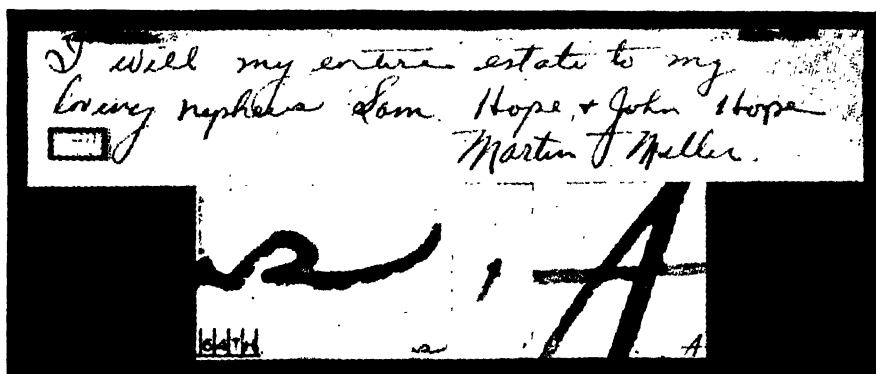 I will my entire estate to my
loving nephews Sam. Hope, & John Hope
Martin J Miller.
64TH